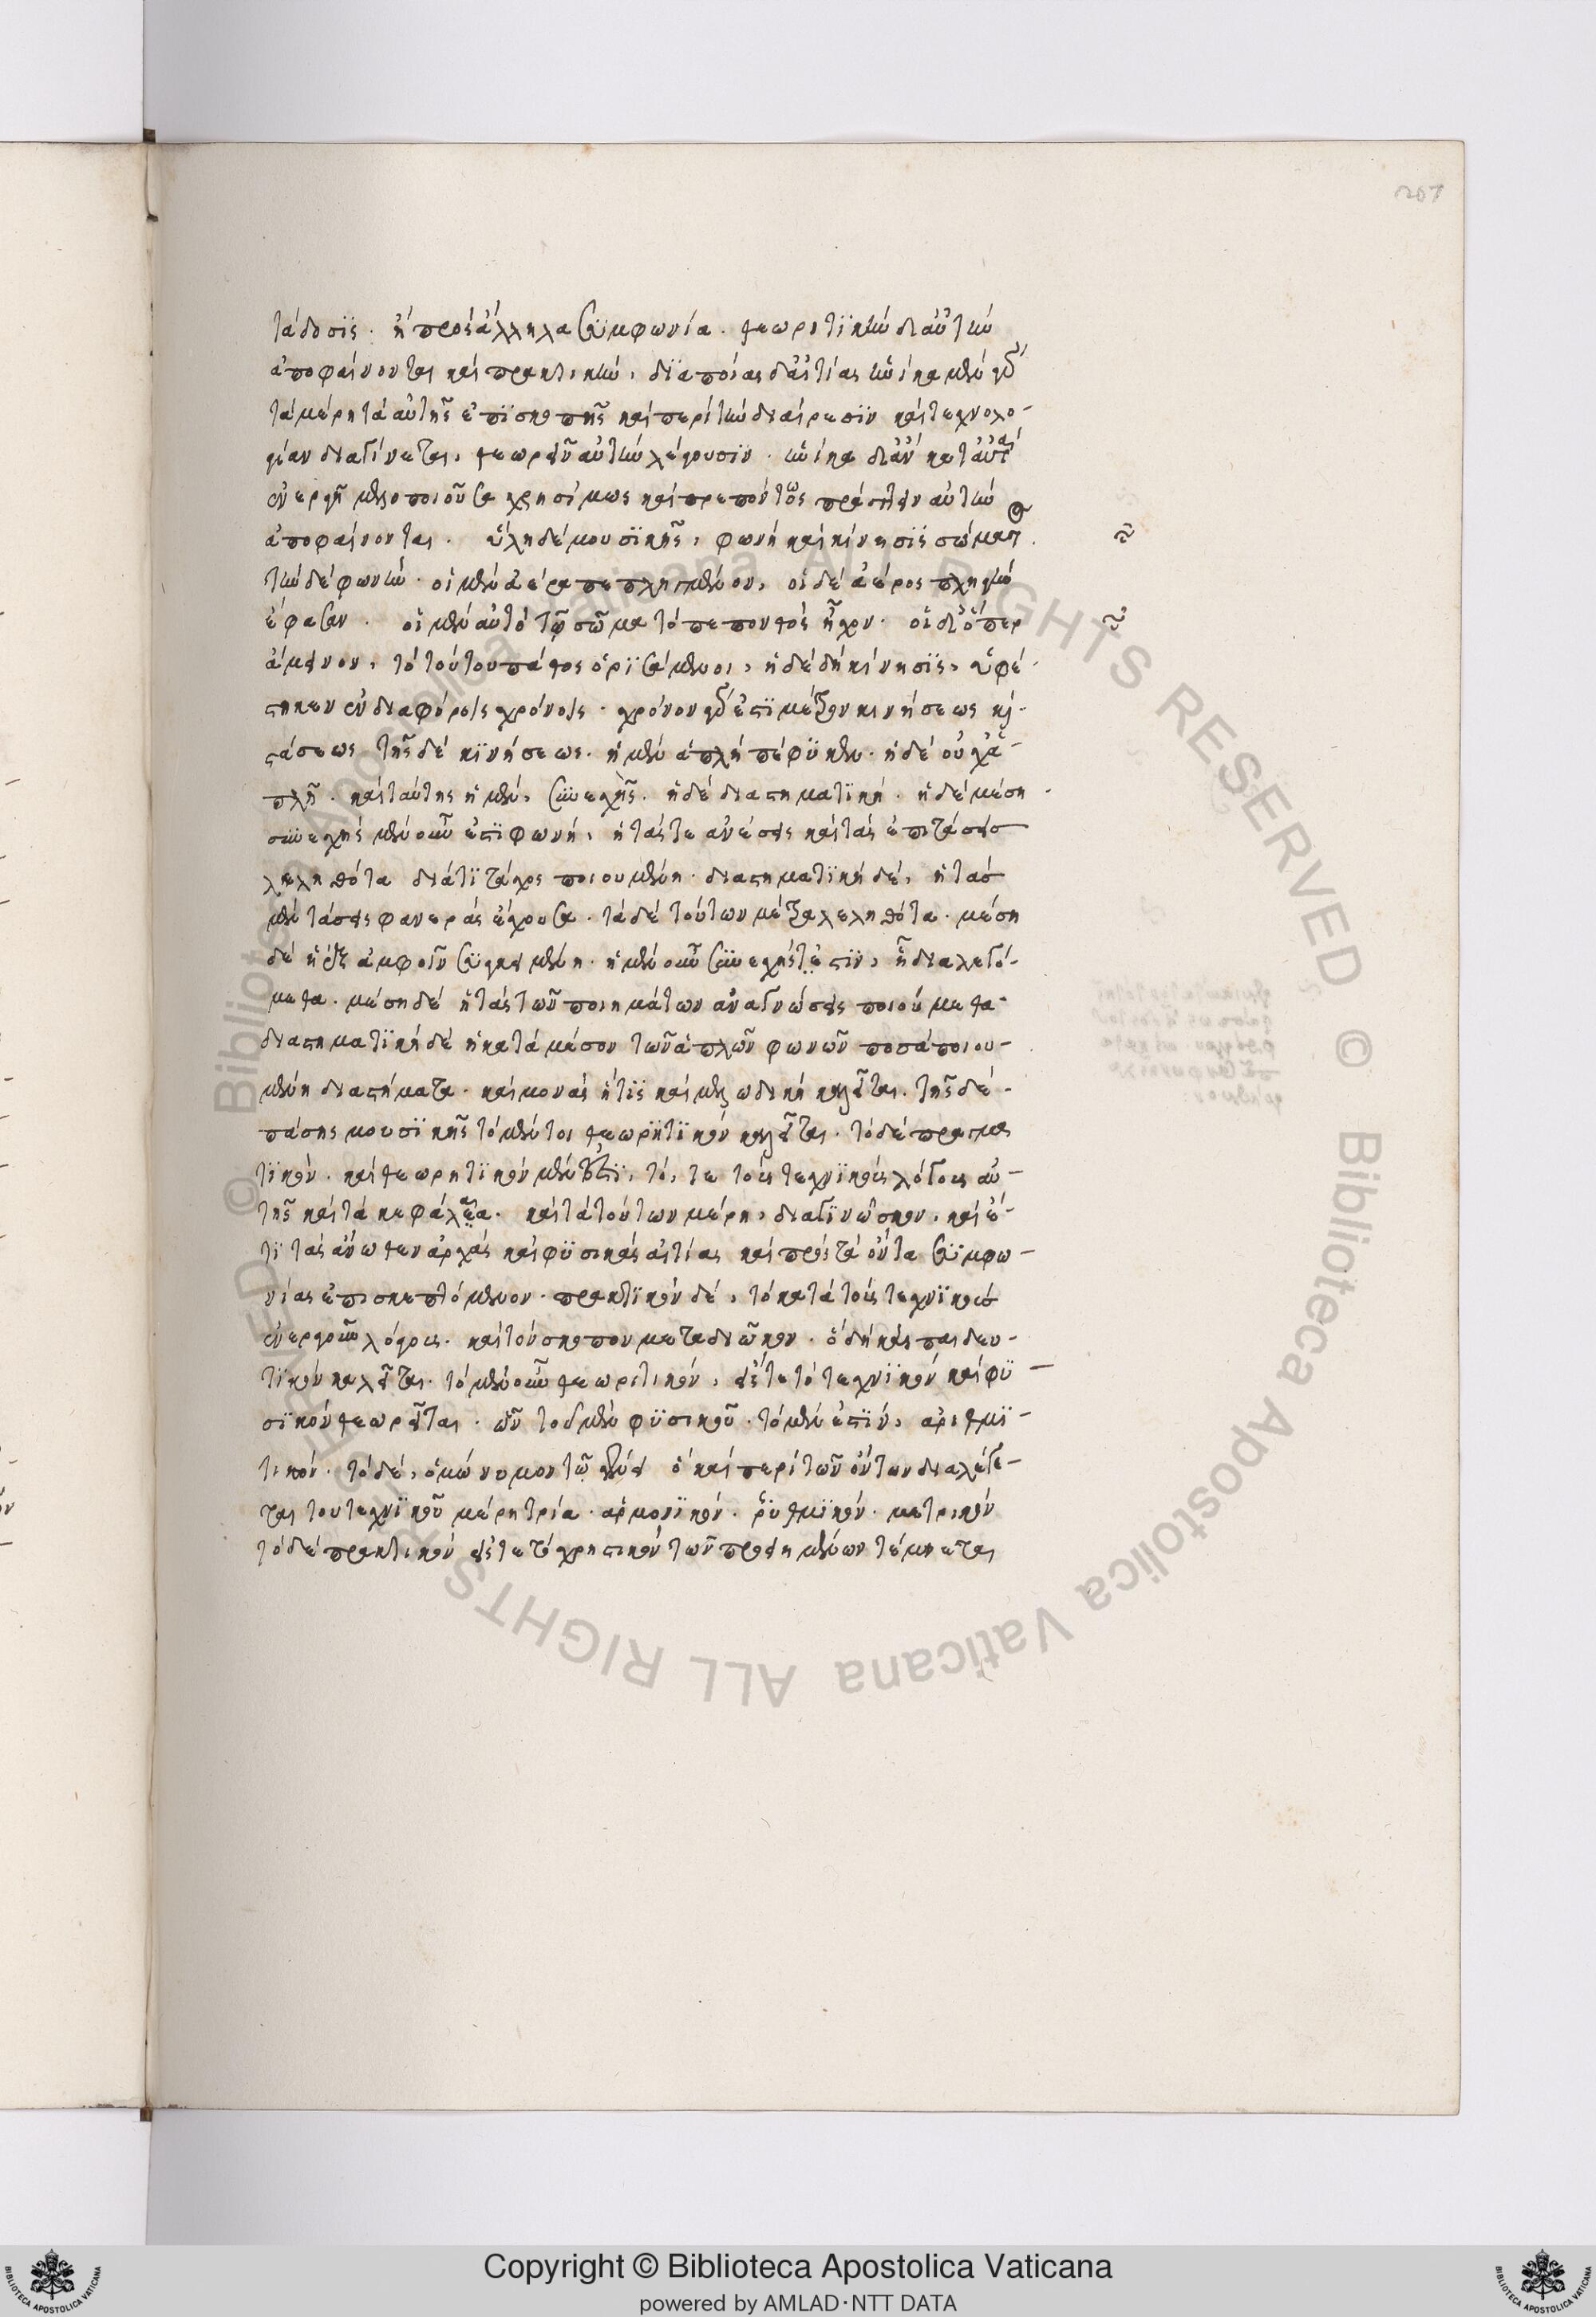 207
τάδοσϊς. ἡ πρὸς ἄλληλα συμφωνία. θεωρϊτϊκὴν δ' αὐτὴν
ἀποφαίνονται καὶ πρακτικήν, δϊαποίας δ' αἰτίας ἡνίκα μὲν γὰρ
τὰ μέρη τὰ αὐτῆς ἐπϊσκοπῆ καὶ περὶ τὴν διαίρεσϊν καὶ τεχνολο-
γίαν διαγίνεται, θεωρεῖν αὐτὴν λέγουσϊν. ἡνίκα δ' ἂν κατ' αὐτὰ
ἐνεργῆ μελοποιοῦσα χρησίμως καὶ πρεπόντως πράττειν αὐτὴν
ἀποφαίνονται. ὕλη δὲ μουσϊκῆς, φωνὴ καὶ κίνησϊς σώματος.
τὴν δὲ φωνὴν. οἱ μὲν ἀέρα πεπλησμένον, οἱ δὲ ἀέρος πληγὴν
ἔφασαν. οἱ μὲν αὐτὸ τῷ σῶμα τὸ πεπονθὸς ἦχον. οἱ δ' ὅπερ
ἄμεινον, τὸ τούτου πάθος ὁρϊσάμενοι, ἡ δὲ δὴ κίνησϊς, ὑφέ-
στηκεν ἐν διαφόροις χρόνοις. χρόνον γὰρ ἐστϊ μέτρον κινήσεως καὶ
στάσεως τῆς δὲ κϊνήσεως. ἡ μὲν ἁπλὴ πέφϋκεν. ἡ δὲ οὐχ ἁ-
πλῆ. καὶ ταύτης ἡ μὲν, συνεχῆς. ἡ δὲ διαστηματϊκή. ἡ δὲ μέση
συνεχὴς μὲν οὖν ἐστϊ φωνή, ἡ τάς τε ἀνέσεις καὶ τὰς ἐπιτάσεις
λεληθότα διάτϊ τάχος ποιουμένη. διαστηματϊκὴ δέ, ἡ τὰς
μὲν τάσεις φανερὰς ἔχουσα. τὰ δὲ τούτων μέτρα λεληθότα. μέση
δὲ ἡ ἐξ ἀμφοῖν συγκειμένη. ἡ μὲν οὖν συνεχής τ ἐστϊν, ᾗ διαλεγό-
μεθα. μέση δὲ ᾗ τὰς τῶν ποιημάτων ἀναγνώσεις ποιούμεθα.
διαστηματϊκὴ δὲ ἡ κατὰ μέσον τῶν ἁπλῶν φωνῶν ποσὰ ποιου-
μένη διαστήματα. καὶ μονὰς ἥτϊς καὶ μελωδικὴ καλεῖται. τῆς δὲ
πάσης μουσϊκῆς τὸ μέν τοι θεωρητϊκὸν καλεῖται. τὸ δὲ πραγμα
τϊκόν. καὶ θεωρητϊκὸν μὲν ἐστϊ, τό, τε τοὺς τεχνϊκοὺς λόγους αὐ-
τῆς καὶ τὰ κεφάλεα. καὶ τὰ τούτων μέρη, διαγϊνῶσκον, καὶ ἔ-
τϊ τὰς ἄνωθεν ἀρχὰς καὶ φϋσικὰς αἰτίας καὶ πρὸς τὰ ὄντα συμφω-
νίας ἐπισκεπτόμενον. πρακτϊκὸν δέ, τὸ κατὰ τοὺς τεχνϊκοὺς
ἐνεργοῦν λόγους. καὶ τὸν σκοπον μεταδιῶκον. ὃ δὴ καὶ παιδευ-
τϊκὸν καλεῖται. τὸ μὲν οὖν θεωριτικόν, εἴς τε τὸ τεχνϊκὸν καὶ φϋ
σϊκὸν θεωρεῖται. ὧν τοῦ μὲν φϋσικοῦ. τὸ μὲν ἐστϊν, ἀριθμϊ-
τικόν. τὸ δέ, ὁμώνυμον τῷ γένει ὃ καὶ περὶ τῶν ὄντων διαλέγε-
ται του τεχνϊκοῦ μέρη τρία. ἁρμονϊκόν. ῥϋθμϊκόν. μετρικόν
τὸ δὲ πρακτικὸν εἴς τε τὸ χρηστικὸν τῶν προειρημένων τέμνεται